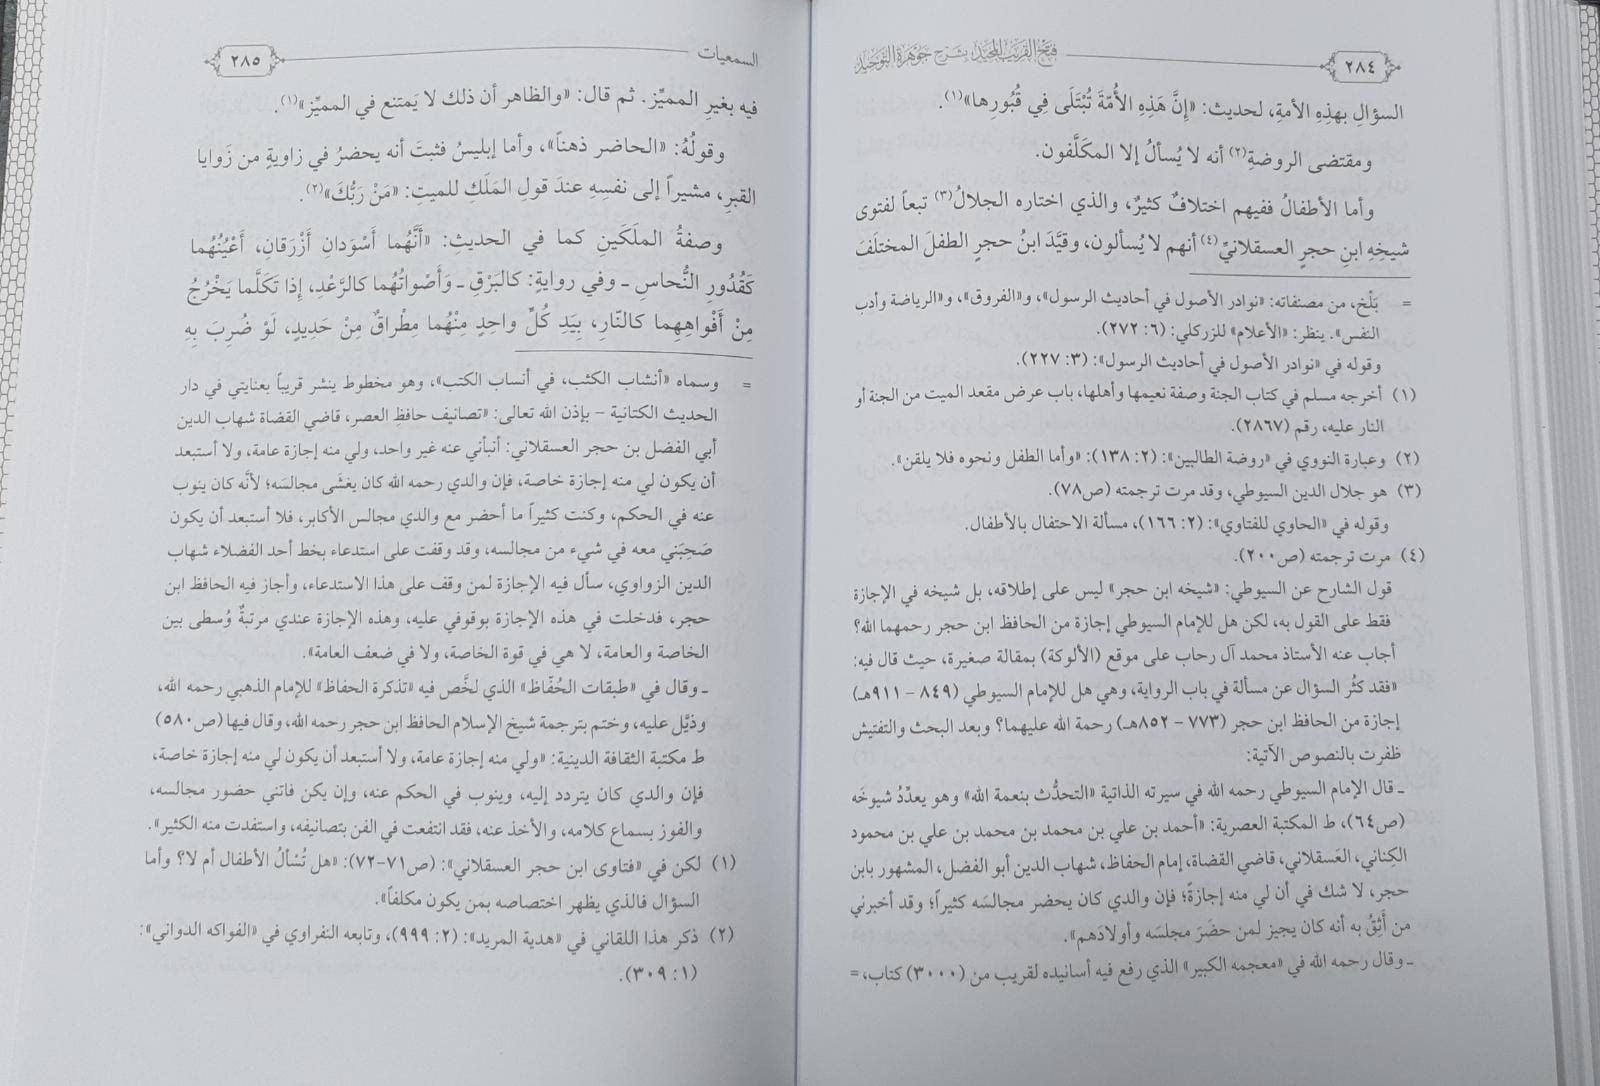 ٢٨٤
فتح القريب المجيد بشرح جوهرة التوحيد
السؤالِ بهذِهِ الأمةِ، لحديث: «إِنَّ هَذِهِ الأُمَّةَ تُبْتَلَى فِي قُبُورِها»(١).
ومقتضى الروضةِ(٢) أنه لا يُسألُ إلا المكلَّفون.
وأما الأطفالُ ففيهم اختلافٌ كثيرٌ، والذي اختاره الجلالُ(٣) تبعاً لفتوى
شيخِهِ ابنِ حجرٍ العسقلانيِّ(٤) أنهم لا يُسألون، وقيَّدَ ابنُ حجرٍ الطفلَ المختلَفَ
= بَلْخ، من مصنفاته: «نوادر الأصول في أحاديث الرسول»، و«الفروق»، و«الرياضة وأدب
النفس». ينظر: «الأعلام» للزركلي: (٦: ٢٧٢).
وقوله في «نوادر الأصول في أحاديث الرسول»: (٣: ٢٢٧).
(١) أخرجه مسلم في كتاب الجنة وصفة نعيمها وأهلها، باب عرض مقعد الميت من الجنة أو
النار عليه، رقم (٢٨٦٧).
(٢) وعبارة النووي في «روضة الطالبين»: (٢: ١٣٨): «وأما الطفل ونحوه فلا يلقن».
(٣) هو جلال الدين السيوطي، وقد مرت ترجمته (ص٧٨).
وقوله في «الحاوي للفتاوي»: (٢: ١٦٦)، مسألة الاحتفال بالأطفال.
(٤) مرت ترجمته (ص٢٠٠).
قول الشارح عن السيوطي: «شيخه ابن حجر» ليس على إطلاقه، بل شيخه في الإجازة
فقط على القول به، لكن هل للإمام السيوطي إجازة من الحافظ ابن حجر رحمهما الله؟
أجاب عنه الأستاذ محمد آل رحاب على موقع (الألوكة) بمقالة صغيرة، حيث قال فيه:
«فقد كثُر السؤال عن مسألة في باب الرواية، وهي هل للإمام السيوطي (٨٤٩ - ٩١١هـ)
إجازة من الحافظ ابن حجر (٧٧٣ - ٨٥٢هـ) رحمة الله عليهما؟ وبعد البحث والتفتيش
ظفرت بالنصوص الآتية:
ـ قال الإمام السيوطي رحمه الله في سيرته الذاتية «التحدُّث بنعمة الله» وهو يعدِّدُ شيوخَه
(ص٦٤)، ط المكتبة العصرية: «أحمد بن علي بن محمد بن محمد بن علي بن محمود
الكِناني، العَسقلاني، قاضي القضاة، إمام الحفاظ، شهاب الدين أبو الفضل، المشهور بابن
حجر، لا شك في أن لي منه إجازةً؛ فإن والدي كان يحضر مجالسَه كثيراً؛ وقد أخبرني
من أَثِقُ به أنه كان يجيز لمن حضَرَ مجلسَه وأولادَهم».
ـ وقال رحمه الله في «معجمه الكبير» الذي رفع فيه أسانيده لقريب من (٣٠٠٠) كتاب، =
السمعيات
٢٨٥
فيه بغيرِ المميِّز. ثم قال: «والظاهر أن ذلك لا يَمتنع في المميِّز»(١).
وقولُهُ: «الحاضر ذهناً»، وأما إبليسُ فثبتَ أنه يحضرُ في زاويةٍ من زَوايا
القبرِ، مشيراً إلى نفسِهِ عندَ قولِ المَلَكِ للميتِ: «مَنْ رَبُّكَ»(٢).
وصفةُ الملَكَينِ كما في الحديثِ: «أَنَّهُما أَسْوَدانِ أَزْرَقانِ، أَعْيُنُهُما
كَقُدُورِ النُّحاسِ ـ وفي روايةٍ: كالبَرْقِ ـ وَأَصْواتُهُما كالرَّعْدِ، إِذا تَكَلَّما يَخْرُجُ
مِنْ أَفْواهِهِما كالنَّارِ، بِيَدِ كُلِّ واحِدٍ مِنْهُما مِطْراقٌ مِنْ حَدِيدٍ، لَوْ ضُرِبَ بِهِ
= وسماه «أنشاب الكثب، في أنساب الكتب»، وهو مخطوط ينشر قريباً بعنايتي في دار
الحديث الكتانية – بإذن الله تعالى: «تصانيف حافظِ العصر، قاضي القضاة شهاب الدين
أبي الفضل بن حجر العسقلاني: أنبأني عنه غير واحد، ولي منه إجازة عامة، ولا أستبعد
أن يكون لي منه إجازة خاصة، فإن والدي رحمه الله كان يغشَى مجالسَه؛ لأنَّه كان ينوب
عنه في الحكم، وكنت كثيراً ما أحضر مع والدي مجالس الأكابر، فلا أستبعد أن يكون
صَحِبَني معه في شيء من مجالسه، وقد وقفت على استدعاء بخط أحد الفضلاء شهاب
الدين الزواوي، سأل فيه الإجازة لمن وقف على هذا الاستدعاء، وأجاز فيه الحافظ ابن
حجر، فدخلت في هذه الإجازة بوقوفي عليه، وهذه الإجازة عندي مرتبةٌ وُسطى بين
الخاصة والعامة، لا هي في قوة الخاصة، ولا في ضعف العامة».
ـ وقال في «طبقات الحُفّاظ» الذي لخَّص فيه «تذكرة الحفاظ» للإمام الذهبي رحمه الله،
وذيَّل عليه، وختم بترجمة شيخ الإسلام الحافظ ابن حجر رحمه الله، وقال فيها (ص٥٨٠)
ط مكتبة الثقافة الدينية: «ولي منه إجازة عامة، ولا أستبعد أن يكون لي منه إجازة خاصة،
فإن والدي كان يتردد إليه، وينوب في الحكم عنه، وإن يكن فاتني حضور مجالسه،
والفوز بسماع كلامه، والأخذ عنه، فقد انتفعت في الفن بتصانيفه، واستفدت منه الكثير».
(١) لكن في «فتاوى ابن حجر العسقلاني»: (ص٧١-٧٢): «هل تُسْألُ الأطفال أم لا؟ وأما
السؤال فالذي يظهر اختصاصه بمن يكون مكلفاً».
(٢) ذكر هذا اللقاني في «هدية المريد»: (٢: ٩٩٩)، وتابعه النفراوي في «الفواكه الدواني»:
(١: ٣٠٩).